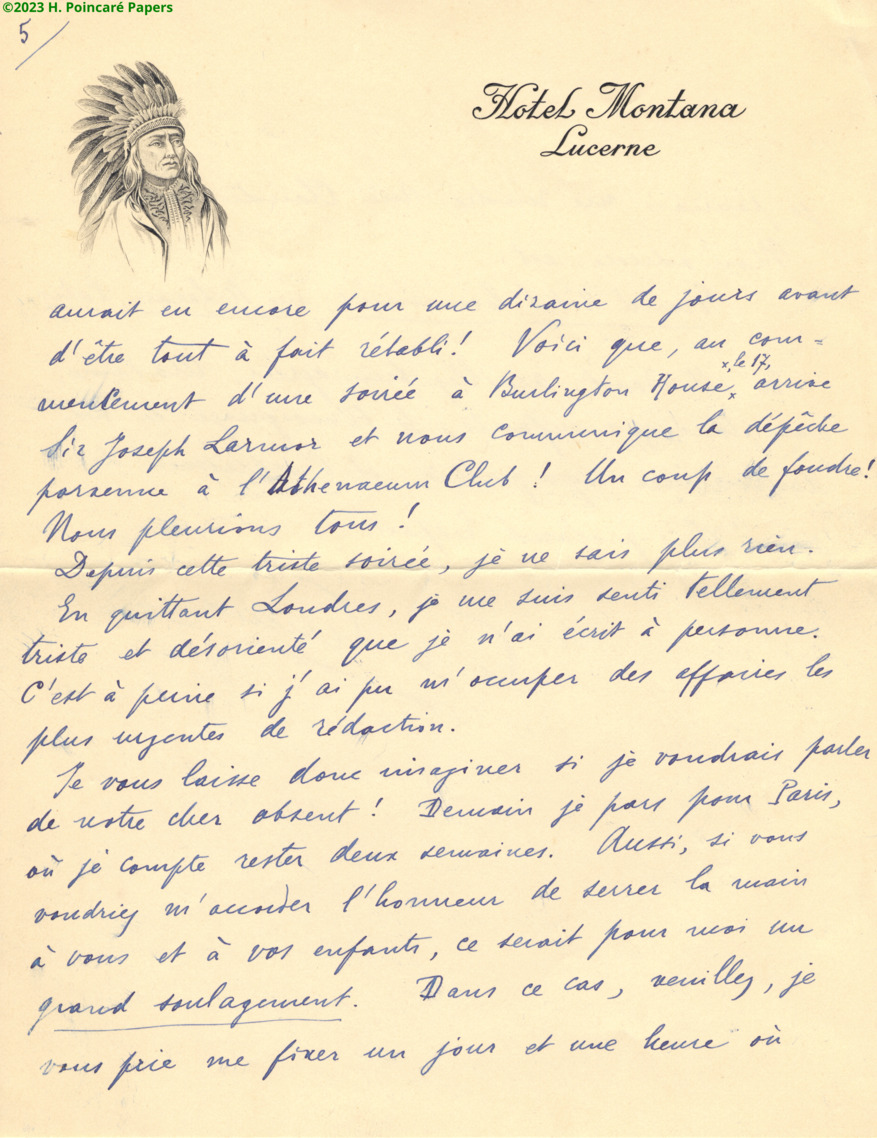 ©2023 H. Poincaré Papers
5
Hotel Montana
Lucerne
aurait eu encore pour une dizaine de jours avant
d'être tout à fait rétabli! Voici que, au com=
mencement d'une soirée à Burlington House, x, le 17, arrive
Sir Joseph Larmor et nous communique la dépêche
parvenue à l'Athenaeum Club! Un coup de foudre!
Nous pleurions tous!
Depuis cette triste soirée, je ne sais plus rien.
En quittant Londres, je me suis senti tellement
triste et désorienté que je n'ai écrit à personne.
C'est à peine si j'ai pu m'occuper des affaires les
plus urgentes de rédaction.
Je vous laisse donc imaginer si je voudrais parler
de notre cher absent! Demain je pars pour Paris,
où je compte rester deux semaines. Aussi, si vous
voudriez m'accorder l'honneur de serrer la main
à vous et à vos enfants, ce serait pour moi un
grand soulagement. Dans ce cas, veuillez, je
vous prie me fixer un jour et une heure où